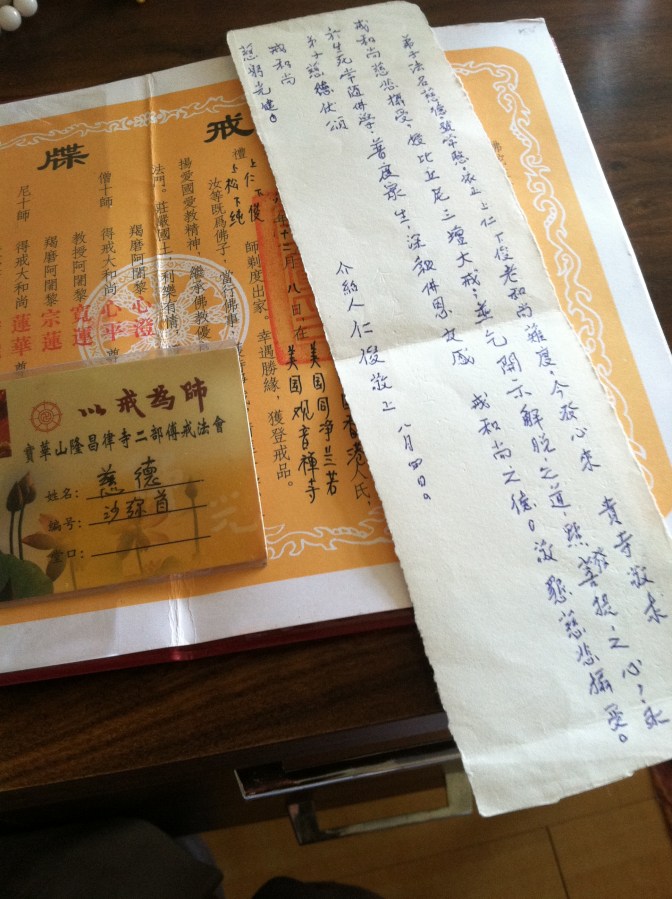 弟子法名慈德號常愍,依上上仁下俊老和尚薙度,今發心來 貴寺敬求
戒和尚慈悲攝受,授比丘尼三壇大戒,並乞開示解脫之道,發菩提之心,永
於生死常隨佛學,普度眾生,深報佛恩 戒和尚之德。敬懇慈悲攝受。
弟子慈德伏頌
戒和尚
慈躬光健。
介紹人仁俊敬上 八月四日。
戒牒
氏
美国同净兰若
十二月八日,在美国观音禅寺
禮上仁下俊
上松下純 師剃度出家,幸遇勝緣,獲登戒品。
汝等既為佛子,當行佛事
揚愛國愛教精神,繼承佛教優
法門。莊嚴國土,利樂有情
羯磨阿闍黎心澄
教授阿闍黎寬蓮
僧十師 得戒大和尚心平 尊
羯磨阿闍黎宗蓮
尼十師 得戒大和尚蓮華 尊
以戒為師
寶華山隆昌律寺二部傳戒法會
姓名:慈德
编号:沙弥首
堂口: